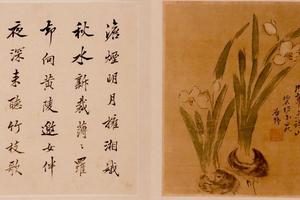 澹煙明月擁湘娥
秋水新裁薄〻羅
却向黄陵邀女伴
夜深来聽竹枝歌